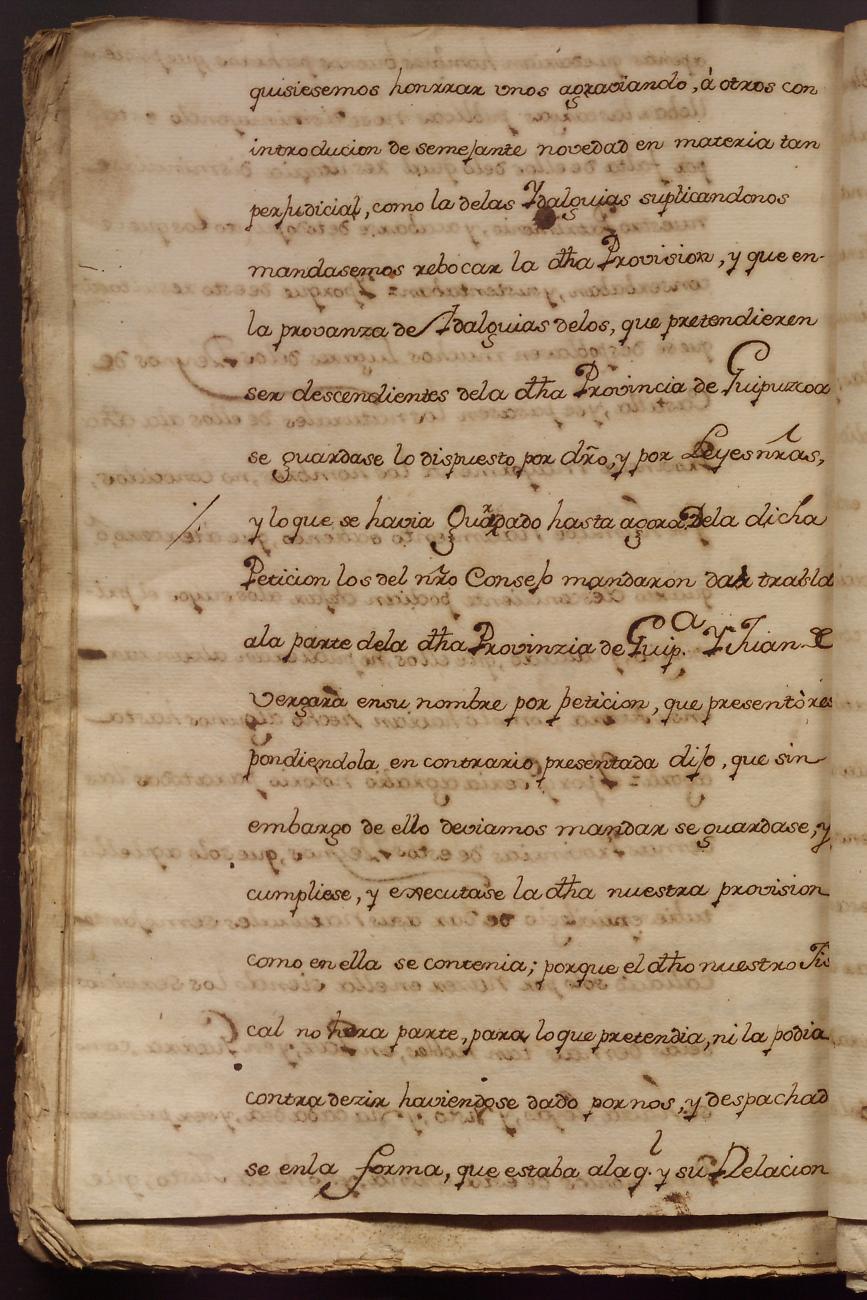 quisiesemos honrrar unos agraviando, à otros con
introducion de semejante novedad en materia tan
perjudicial, como la delas Ydalguias suplicandonos
mandasemos rebocar la dha Provision, y que en-
la provanza de Ydalguias delos, que pretendieren
ser descendientes dela dha Provincia de Guipuzcoa
se guardase lo dispuesto por dr̃o, y por Leyes nr̃as,
y lo que se havia Guardado hasta agora Dela dicha
Peticion los del nr̃o Consejo mandaron dar trasla
ala parte dela dha Provinzia de Guip.oa Y Juan de
Vergara ensu nombre por peticion, que presentò res
pondiendola en contrario presentada dijo, que sin
embargo de ello deviamos mandar se guardase, y
cumpliese, y executase la dha nuestra provision
como en ella se contenia; porque el dho nuestro Fis
cal no hera parte, para lo que pretendia, ni la podia
contradezir haviendose dado por nòs, y despachad
se enla forma, que estaba ala q.l y su Relacion